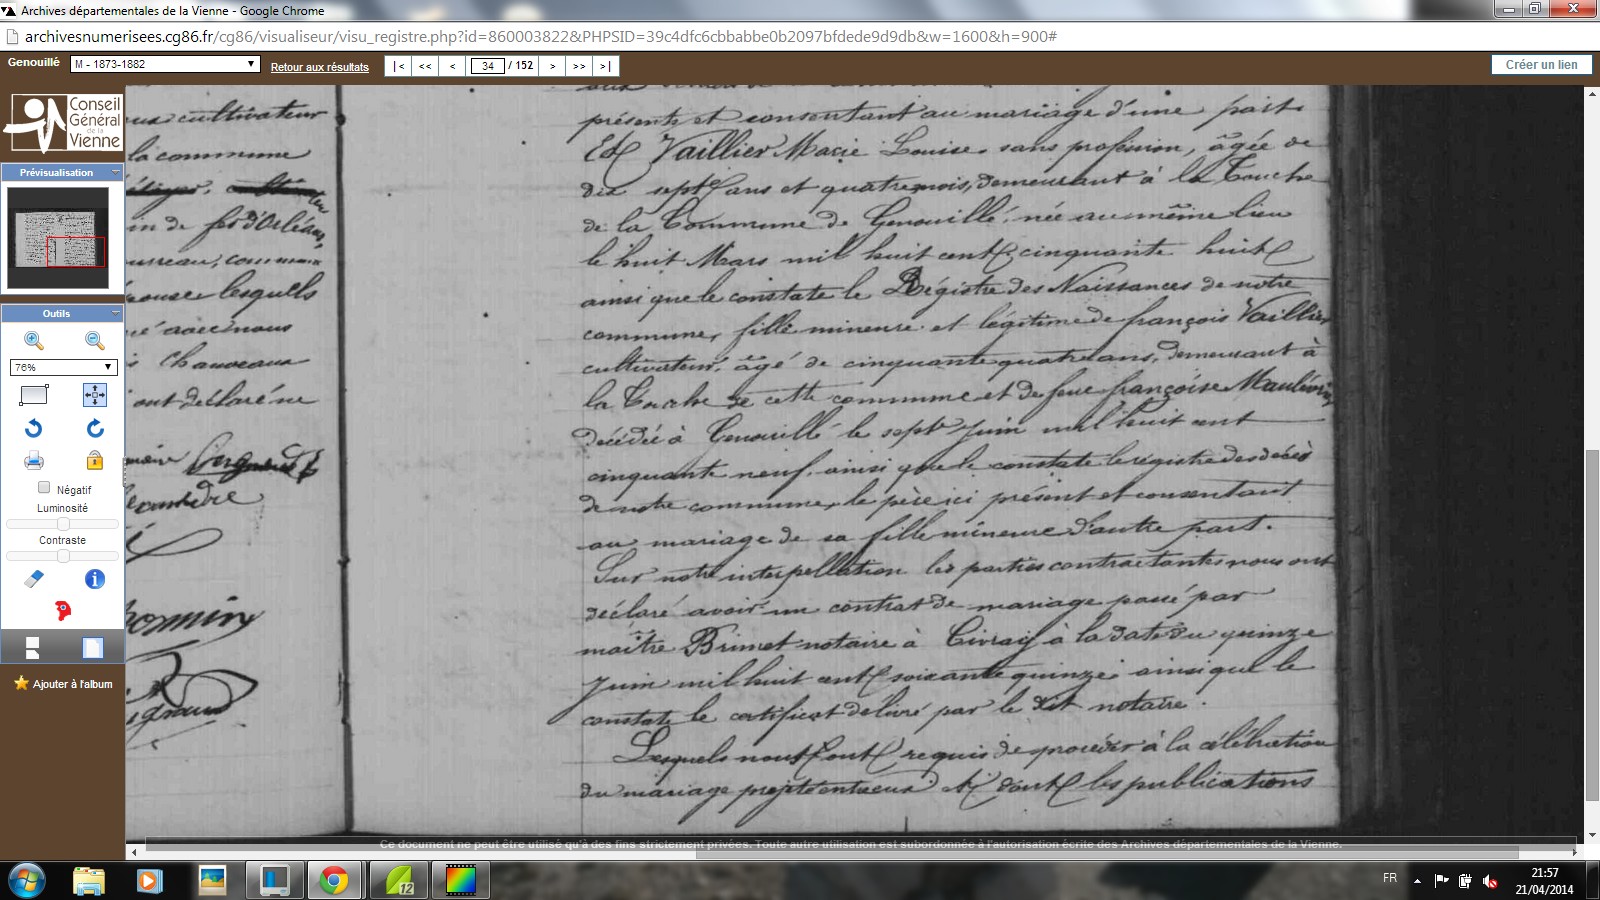 Archives départementales de la Vienne - Google Chrome
archivesnumerisees.cg86.fr/cg86/visualiseur/visu_registre.php?id=860003822&PHPSID=39c4dfc6cbbabbe0b2097bfdede9d9db&w=1600&h=900#
Genouillé M - 1873-1882 Retour aux résultats |< << < 34 / 152 > >> >| Créer un lien
Conseil
Général
de la
Vienne
Prévisualisation
Outils
76%
Négatif
Luminosité
Contraste
Ajouter à l'album
cultivateur
la commune
in de fer d'Orléans,
épouse lesquels
avec nous
Chauveaux
ont déclaré ne
présents et consentant au mariage d'une part
Et Vaillier Marie Louise, sans profession, âgée de
dix sept ans et quatre mois, demeurant à la Touche
de la Commune de Genouillé, née au même lieu
le huit Mars mil huit cent cinquante huit
ainsi que le constate le Régistre des Naissances de notre
commune, fille mineure et légitime de françois Vaillier
cultivateur, âgé de cinquante quatre ans, demeurant à
la Touche de cette commune et de feue françoise
décédée à Genouillé le sept Juin mil huit cent
cinquante neuf, ainsi que le constate le régistre des décès
de notre commune, le père ici présent et consentant
au mariage de sa fille mineure d'autre part.
Sur notre interpellation les parties contractantes nous ont
déclaré avoir un contrat de mariage passé par
maître Brimet notaire à Civray à la date du quinze
Juin mil huit cent soixante quinze ainsi que le
constate le certificat délivré par le dit notaire.
Lesquels nous ont requis de procéder à la célébration
du mariage projeté entre eux et dont les publications
Ce document ne peut être utilisé qu'à des fins strictement privées. Toute autre utilisation est subordonnée à l'autorisation écrite des Archives départementales de la Vienne.
12
FR
21:57
21/04/2014